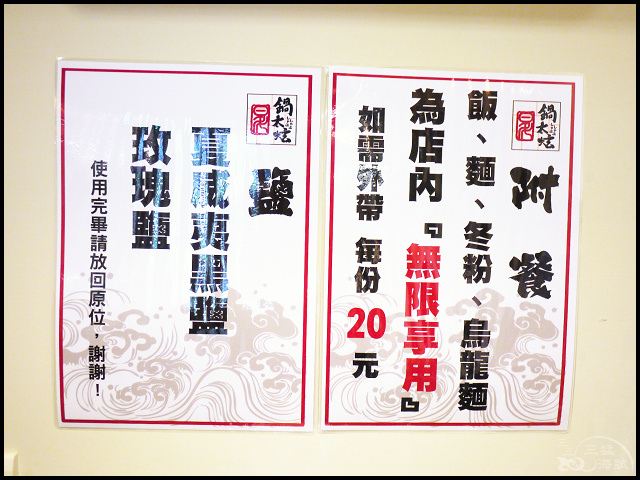 鍋太炫
附餐
飯、麵、冬粉、烏龍麵
為店內『無限享用』
如需外帶 每份20元
鍋太炫
鹽
夏威夷黑鹽
玫瑰鹽
使用完畢請放回原位，謝謝！